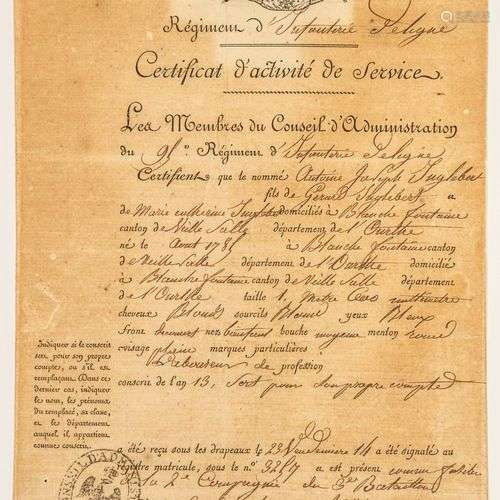 Régiment d'Infanterie De ligne
Certificat d'activité de Service.
Les Membres du Conseil d'Administration
du 9e Régiment d'Infanterie De ligne
Certifient que le nommé Antoine Joseph Inglebert
fils de Inglebert a
de Marie domiciliés à Blanche fontaine
canton de Vielle Salle département de l'Ourthe
né le Aout 1785 à Blanche fontaine canton
de Vielle Salle département de l'Ourthe domicilié
à Blanche fontaine canton de Vielle Salle département
de l'Ourthe taille 1 Mètre
cheveux Blonds sourcils Blond yeux Bleux
front nez bouche moyenne menton rond
visage plein marques particulières
Laboureur de profession
conscrit de l'an 13, Sert pour Son propre compte
Indiquer si le conscrit
sert pour son propre
compte, ou s'il est
remplaçant. Dans ce
dernier cas, indiquer
le nom, les prénoms
du remplacé, sa classe,
et le département
auquel il appartient
comme conscrit.
a été reçu sous les drapeaux le 23 Vendemiaire 14 a été signalé au
registre matricule, sous le n.° 3257 et est présent comme
la 2e Compagnie du Bataillon
CONSEIL D'ADM